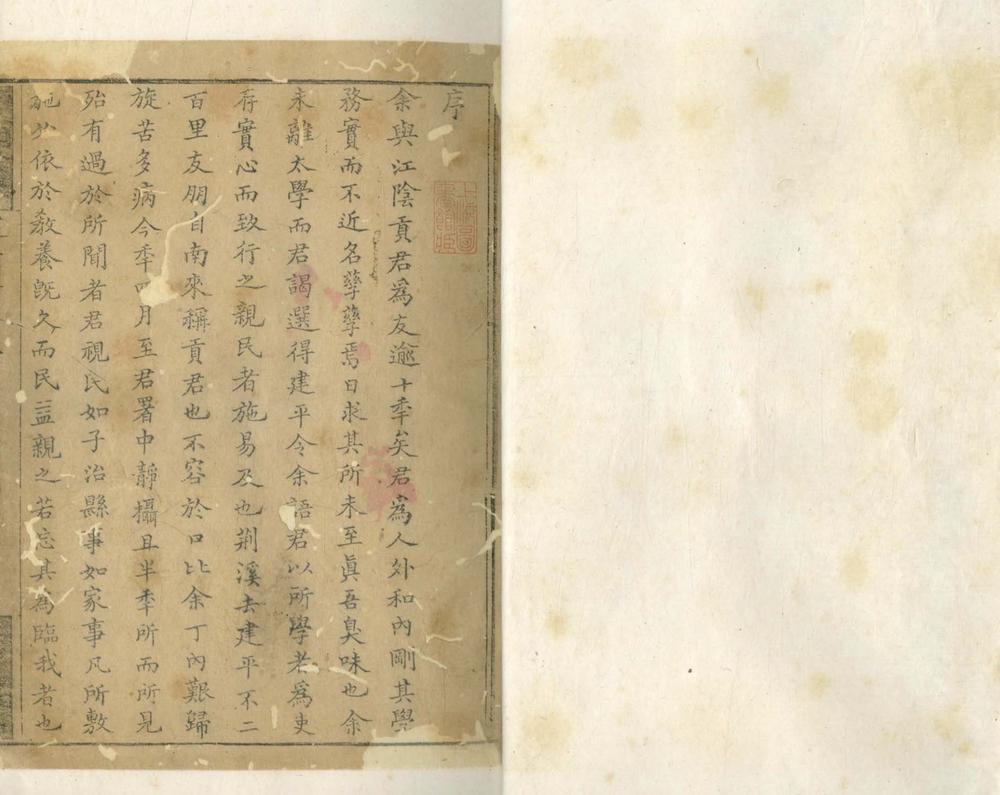 序
余與江陰貢君為友逾十秊矣君為人外和內剛其學
務實而不近名孳孳焉日求其所未至眞吾臭味也余
未離太學而君謁選得建平令余語君以所學者為吏
存實心而致行之親民者施易及也荆溪去建平不二
百里友朋自南來稱貢君也不容於口比余丁內艱歸
旋苦多病今秊四月至君署中靜攝且半秊所而所見
殆有過於所聞者君視民如子治縣事如家事凡所敷
施必依於敎養旣久而民益親之若忘其為臨我者也
上海圖書館藏